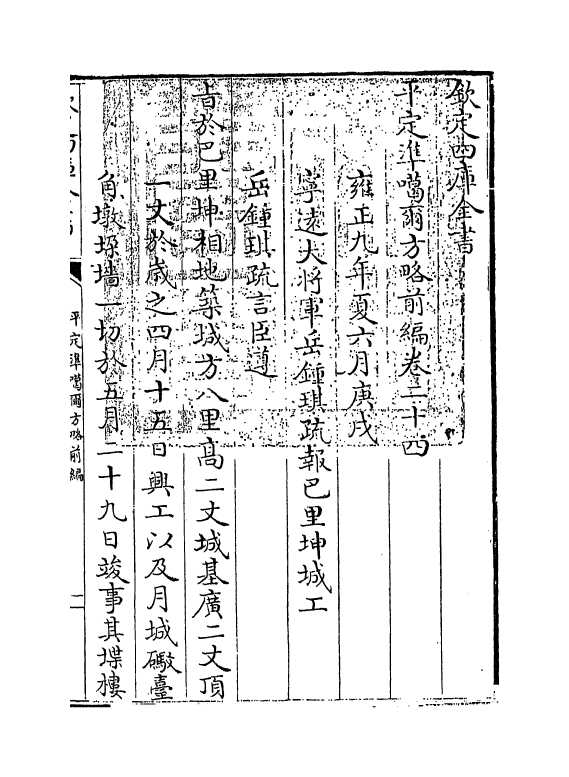 欽定四庫全書
平定準噶爾方略前編卷二十四
雍正九年夏六月庚戌
寧遠大將軍岳鍾琪疏報巴里坤城工
岳鍾琪疏言臣遵
旨於巴里坤相地築城方八里高二丈城基廣二丈頂
一丈於歲之四月十五日興工以及月城礮臺
角墩垜墻一切於五月二十九日竣事其堞樓
平定準噶爾方略前編